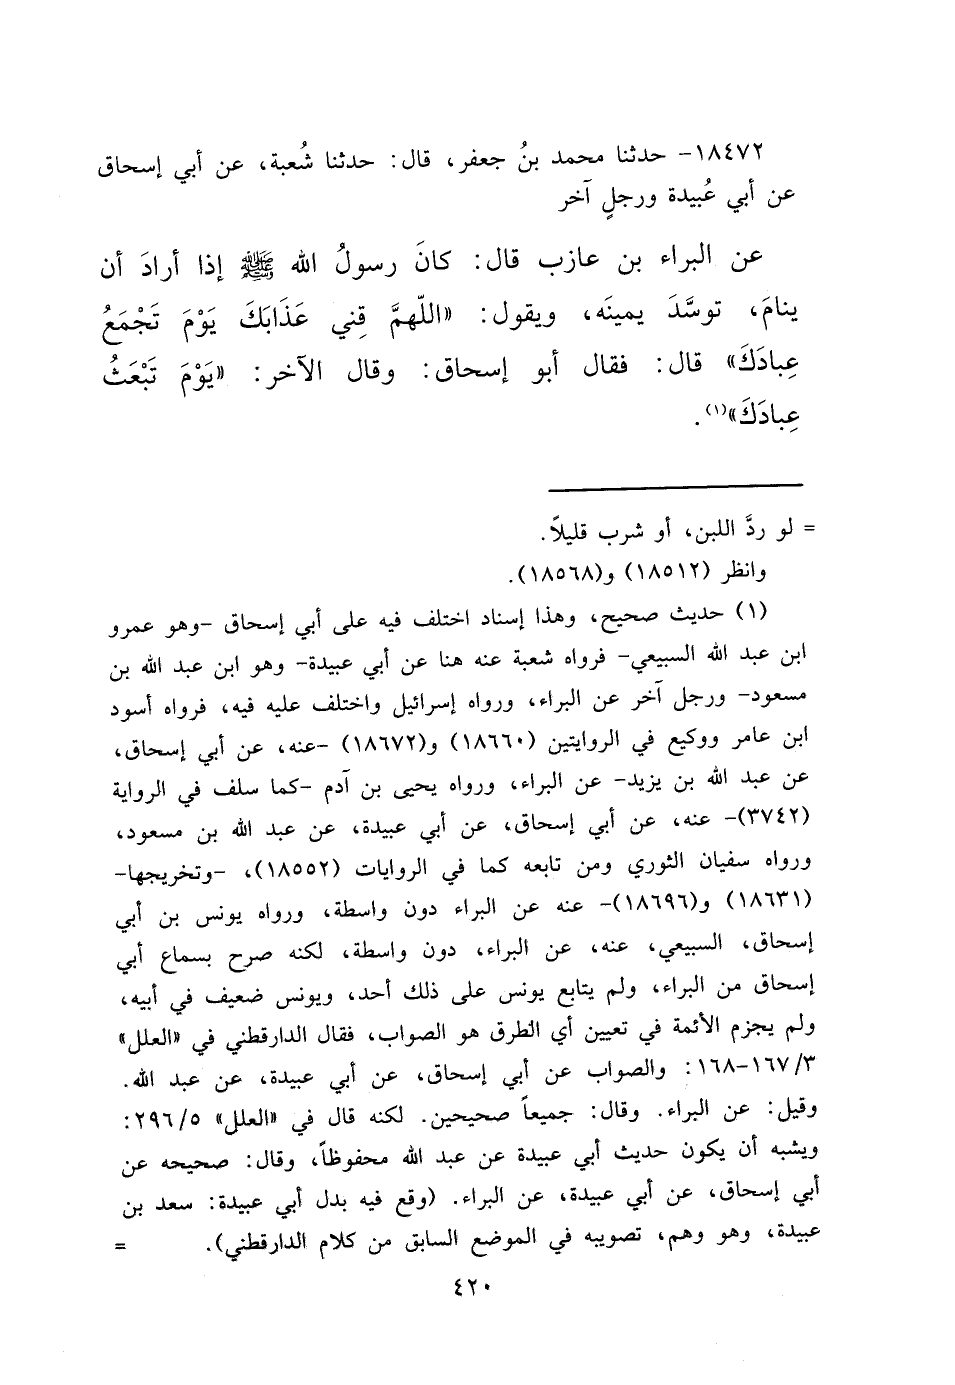 ١٨٤٧٢- حدثنا محمد بنُ جعفر، قال: حدثنا شُعبة، عن أبي إسحاق
عن أبي عُبيدة ورجلٍ آخر
عن البراء بن عازب قال: كانَ رسولُ الله ﷺ إذا أرادَ أن
ينامَ، توسَّدَ يمينَه، ويقول: «اللّهمَّ قِني عَذَابَكَ يَوْمَ تَجْمَعُ
عِبادَكَ» قال: فقال أبو إسحاق: وقال الآخر: «يَوْمَ تَبْعَثُ
عِبادَكَ»(١).
= لو ردَّ اللبن، أو شرب قليلاً.
وانظر (١٨٥١٢) و(١٨٥٦٨).
(١) حديث صحيح، وهذا إسناد اختلف فيه على أبي إسحاق -وهو عمرو
ابن عبد الله السبيعي- فرواه شعبة عنه هنا عن أبي عبيدة- وهو ابن عبد الله بن
مسعود- ورجل آخر عن البراء، ورواه إسرائيل واختلف عليه فيه، فرواه أسود
ابن عامر ووكيع في الروايتين (١٨٦٦٠) و(١٨٦٧٢) -عنه، عن أبي إسحاق،
عن عبد الله بن يزيد- عن البراء، ورواه يحيى بن آدم -كما سلف في الرواية
(٣٧٤٢)- عنه، عن أبي إسحاق، عن أبي عبيدة، عن عبد الله بن مسعود،
ورواه سفيان الثوري ومن تابعه كما في الروايات (١٨٥٥٢)، -وتخريجها-
(١٨٦٣١) و(١٨٦٩٦)- عنه عن البراء دون واسطة، ورواه يونس بن أبي
إسحاق، السبيعي، عنه، عن البراء، دون واسطة، لكنه صرح بسماع أبي
إسحاق من البراء، ولم يتابع يونس على ذلك أحد، ويونس ضعيف في أبيه،
ولم يجزم الأئمة في تعيين أي الطرق هو الصواب، فقال الدارقطني في «العلل»
٣/ ١٦٧-١٦٨: والصواب عن أبي إسحاق، عن أبي عبيدة، عن عبد الله.
وقيل: عن البراء. وقال: جميعاً صحيحين. لكنه قال في «العلل» ٥/ ٢٩٦:
ويشبه أن يكون حديث أبي عبيدة عن عبد الله محفوظاً، وقال: صحيحه عن
أبي إسحاق، عن أبي عبيدة، عن البراء. (وقع فيه بدل أبي عبيدة: سعد بن
عبيدة، وهو وهم، تصويبه في الموضع السابق من كلام الدارقطني). =
٤٢٠